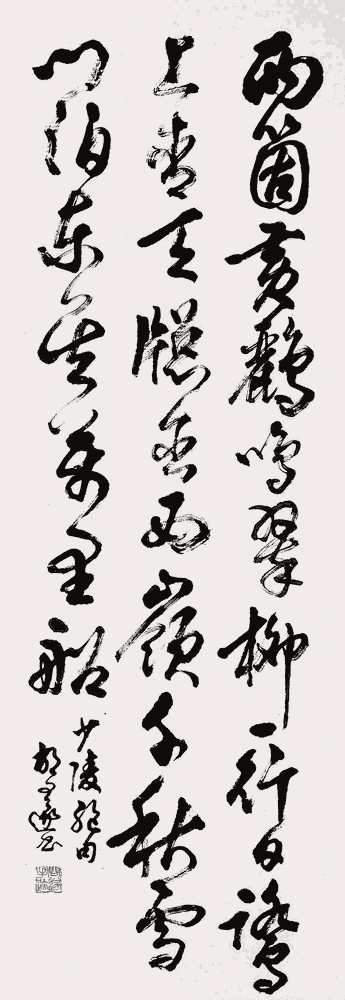 兩箇黃鸝鳴翠柳一行白鷺
上青天牕含西嶺千秋雪
門泊東吳萬里船
少陵絕句
胡問遂書